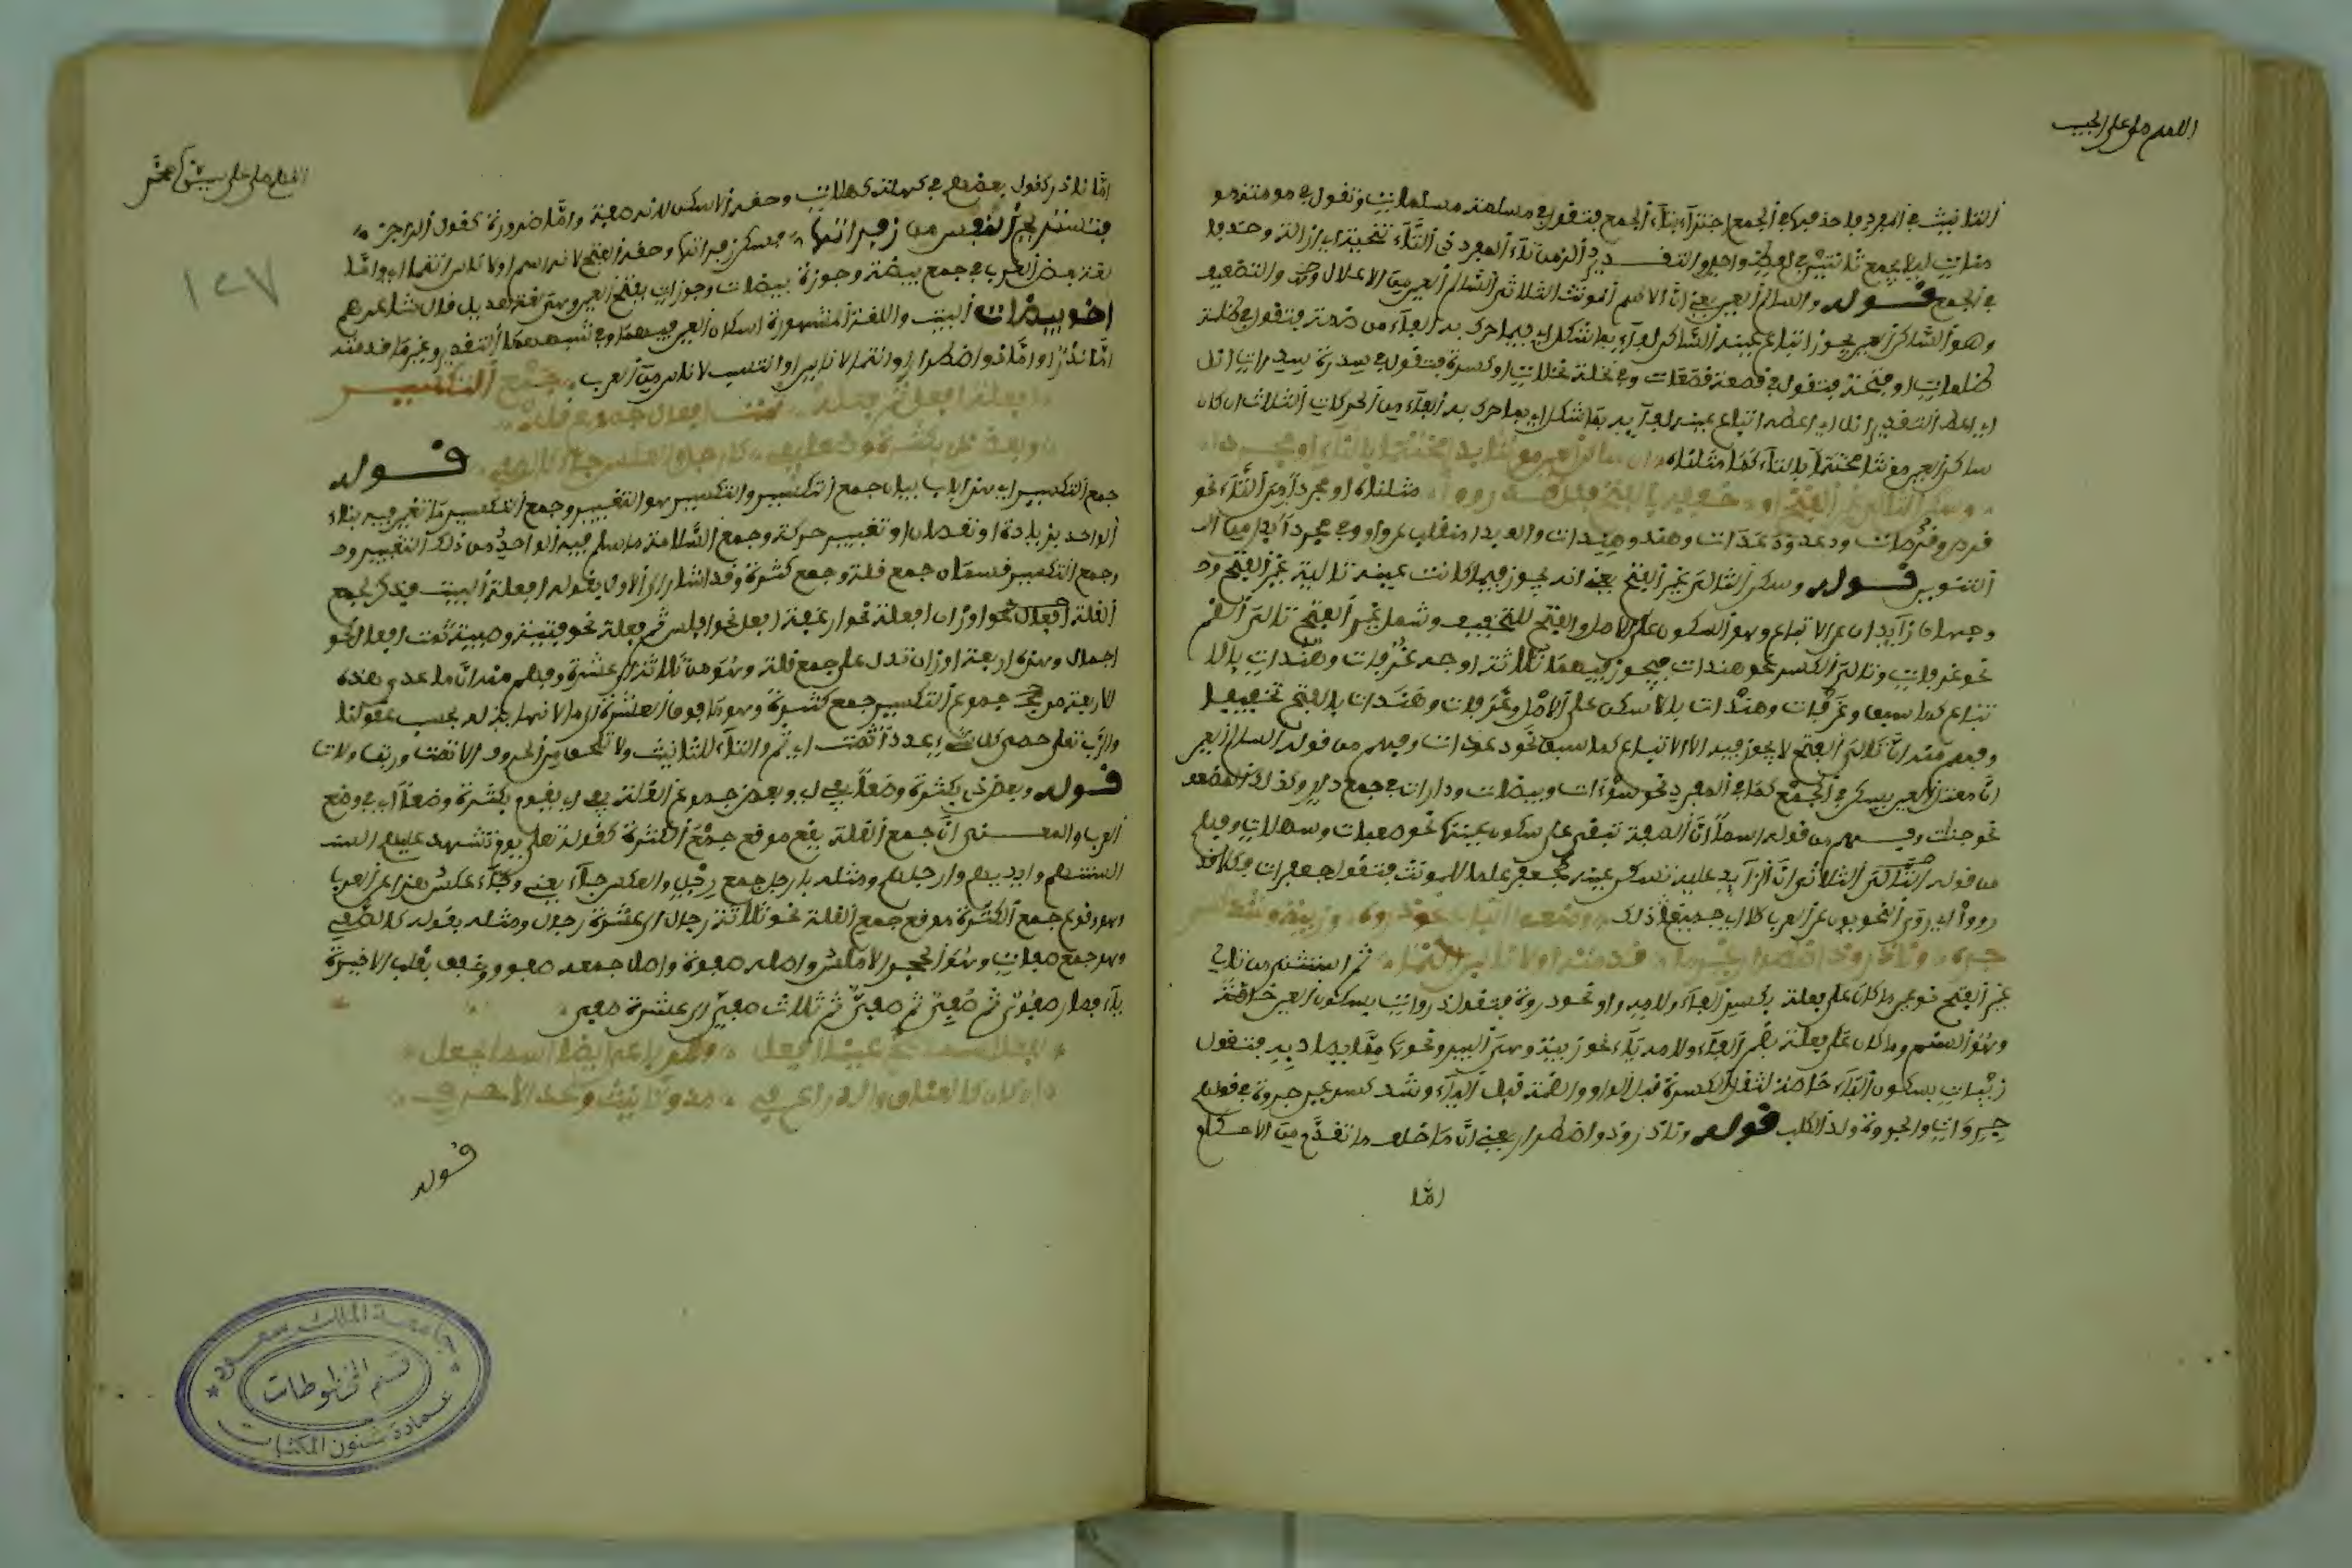 اللهم صل على الحبيب
التانيث في المفرد فاحذفها في الجمع اجتزاء بتاء الجمع فتقول في مسلمة مسلمات وتقول في مومنة مو
منات ليلا يجمع تانيثين في لفظ واحد والتقدير الزمن تاء المفرد ذي التاء تنحية اي ازالة وحذفا
في الجمع قوله والسالم العين يعني ان الاسم المونث الثلاثي السالم العين من الاعلال والتضعيف
وهو الساكن العين يجوز اتباع عينه الساكن لفاءه بما شكل اي فيما حرك به الفاء من ضمة فتقول في ظلمة
ظلمات او فتحة فتقول في قصعة قصعات وفي نخلة نخلات او كسرة فتقول في سدرة سدرات انل
اي اعط التقدير انل اي اعطه اتباع عينه لفاءه بما شكل اي بما حرك به الفاء من الحركات الثلاث ان كان
ساكن العين مونثا مختتما بالتاء كما مثلناه ان ساكن العين مونثا بدا مختتما بالتاء او مجردا
وسكن التالي غير الفتح او خففه بالفتح فكلا قد رووا مثلناه او مجردا من التاء نحو
ودعد ودعدات وهند وهندات
التنوير قوله وسكن التالي غير الفتح يعني انه يجوز فيما كانت عينه تالية غير الفتح وج
وجهان زايدان على الاتباع وهو السكون على الاصل والفتح للتخفيف وشمل غير الفتح تالي الضم
نحو غرفات وتالي الكسر نحو هندات فيجوز فيهما ثلاثة اوجه غرفات وهندات بالا
تباع كما سبق وغرفات وهندات بالاسكان على الاصل وغرفات وهندات بالفتح تخفيفا
وفهم منه ان تالي الفتح لا يجوز فيه الا الاتباع كما سبق نحو دعدات وفهم من قوله السالم العين
ان معتل العين يسكن في الجمع كما في المفرد نحو سوءات وبيضات ودارات في جمع دار وكذلك المضعف
نحو جنات وفهم من قوله اسما ان الصفة تبقى على سكون عينها نحو صعبات وسهلات وفهم
من قوله الثلاثي ان الزايد عليه تسكن عينه كجعفر علما لمونث فتقول جعفرات فكلا قد
رووا اي روى النحويون عن العرب كلا اي جميع ذلك ومنعوا اتباع نحو ذروه وزبية وشذ كسر
جروه ونادر او ذو اضطرار غير ما قدمته او لاناس انتما ثم استثنى من تالي
غير الفتح نوعين ما كان على فعلة بكسر الفاء ولامه واو نحو ذروة فتقول ذروات بسكون العين خاصة
وهو السنم وما كان على فعلة بضم الفاء ولامه ياء نحو زبية وهي البير ونحوها مما يصاد به فتقول
زبيات بسكون الباء خاصة لثقل الكسرة قبل الواو والضمة قبل الياء وشذ كسر عين جروة في قولهم
جروات والجروة ولد الكلب قوله ونادر او ذو اضطرار يعني ان ما خالف ما تقدم من الاحكام
اما
اللهم صل على سيدنا محمد
١٢٧
اما نادر كقول بعضهم في كهلة كهلات وحقه الاسكان لانه صفة واما ضرورة كقول الراجز
فتستريح النفس من زفراتها فسكن زفراتها وحقه الفتح لانه اسم او لاناس انتما اي واما
لغة بعض العرب في جمع بيضة وجوزة بيضات وجوزات بفتح العين وهي لغة هذيل قال شاعرهم
اخو بيضات البيت واللغة المشهورة اسكان العين فيهما وفي شبههما التقدير وغير ما قدمته
اما نادر او اما ذو اضطرار او انتما لاناس او انتسب لاناس من العرب جمع التكسير
افعلة افعل ثم فعله ثمت افعال جموع قله
وبعض ذي بكثرة وضعا يفي كارجل والعكس جاء كالصفي قوله
جمع التكسير اي هذا باب بيان جمع التكسير والتكسير هو التغيير وجمع التكسير ما تغير فيه بناء
الواحد بزيادة او نقصان او تغيير حركة وجمع السلامة ما سلم فيه الواحد من ذلك التغيير وج
وجمع التكسير قسمان جمع قلة وجمع كثرة وقد اشار الى الاول بقوله افعلة البيت فذكر لجمع
القلة اربعة اوزان افعلة نحو ارغفة افعل نحو افلس ثم فعلة نحو فتية وصبية ثمت افعال نحو
اجمال وهذه اربعة اوزان تدل على جمع قلة وهو من ثلاثة الى عشرة وفهم منه ان ما عدى هذه
الاربعة من جموع التكسير جمع كثرة وهو ما فوق العشرة الى ما لا نهاية له بحسب عقولنا
والرب تعلى حصى كل شيء عددا ثمت اي ثم والتاء للتانيث ولا تلحق من الحروف الا ثمت وربت ولات
قوله وبعض ذي بكثرة وضعا يفي اي وبعض جموع القلة يفي اي يقوم بكثرة وضعا اي في وضع
العرب والمعنى ان جمع القلة يقع موقع جمع الكثرة كقوله تعلى يوم تشهد عليهم السنـ
السنتهم وايديهم وارجلهم ومثله بارجل جمع رجل والعكس جاء يعني وجاء عكس هذا عن العرب
وهو وقوع جمع الكثرة موقع جمع القلة نحو ثلاثة رجال الى عشرة رجال ومثله بقوله كالصفي
وهو جمع صفات وهو الحجر الاملس واصله صفوة واصل جمعه صفوو وخفف بقلب الاخيرة
ياء فصار صفوي ثم صفي ثم صفي ثم ثلاث صفي الى عشرة صفي
لفعل اسما صح عينا افعل وللرباعي اسما ايضا يجعل
ان كان كالعناق والذراع في مد وتانيث وعد الاحرف
قوله
جامعة الملك سعود
قسم المخطوطات
عمادة شئون المكتبات